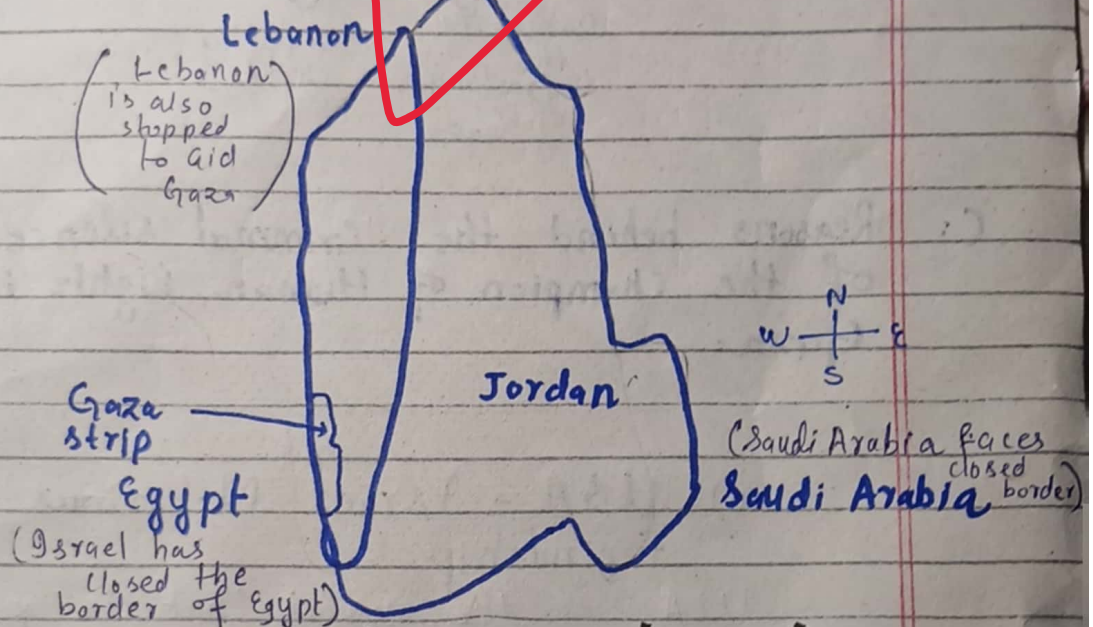 Lebanon
(Lebanon
is also
stopped
to aid
Gaza)
N
W E
S
Jordan
Gaza
strip
Egypt
(Israel has
closed the
border of Egypt)
(Saudi Arabia faces
closed
border)
Saudi Arabia